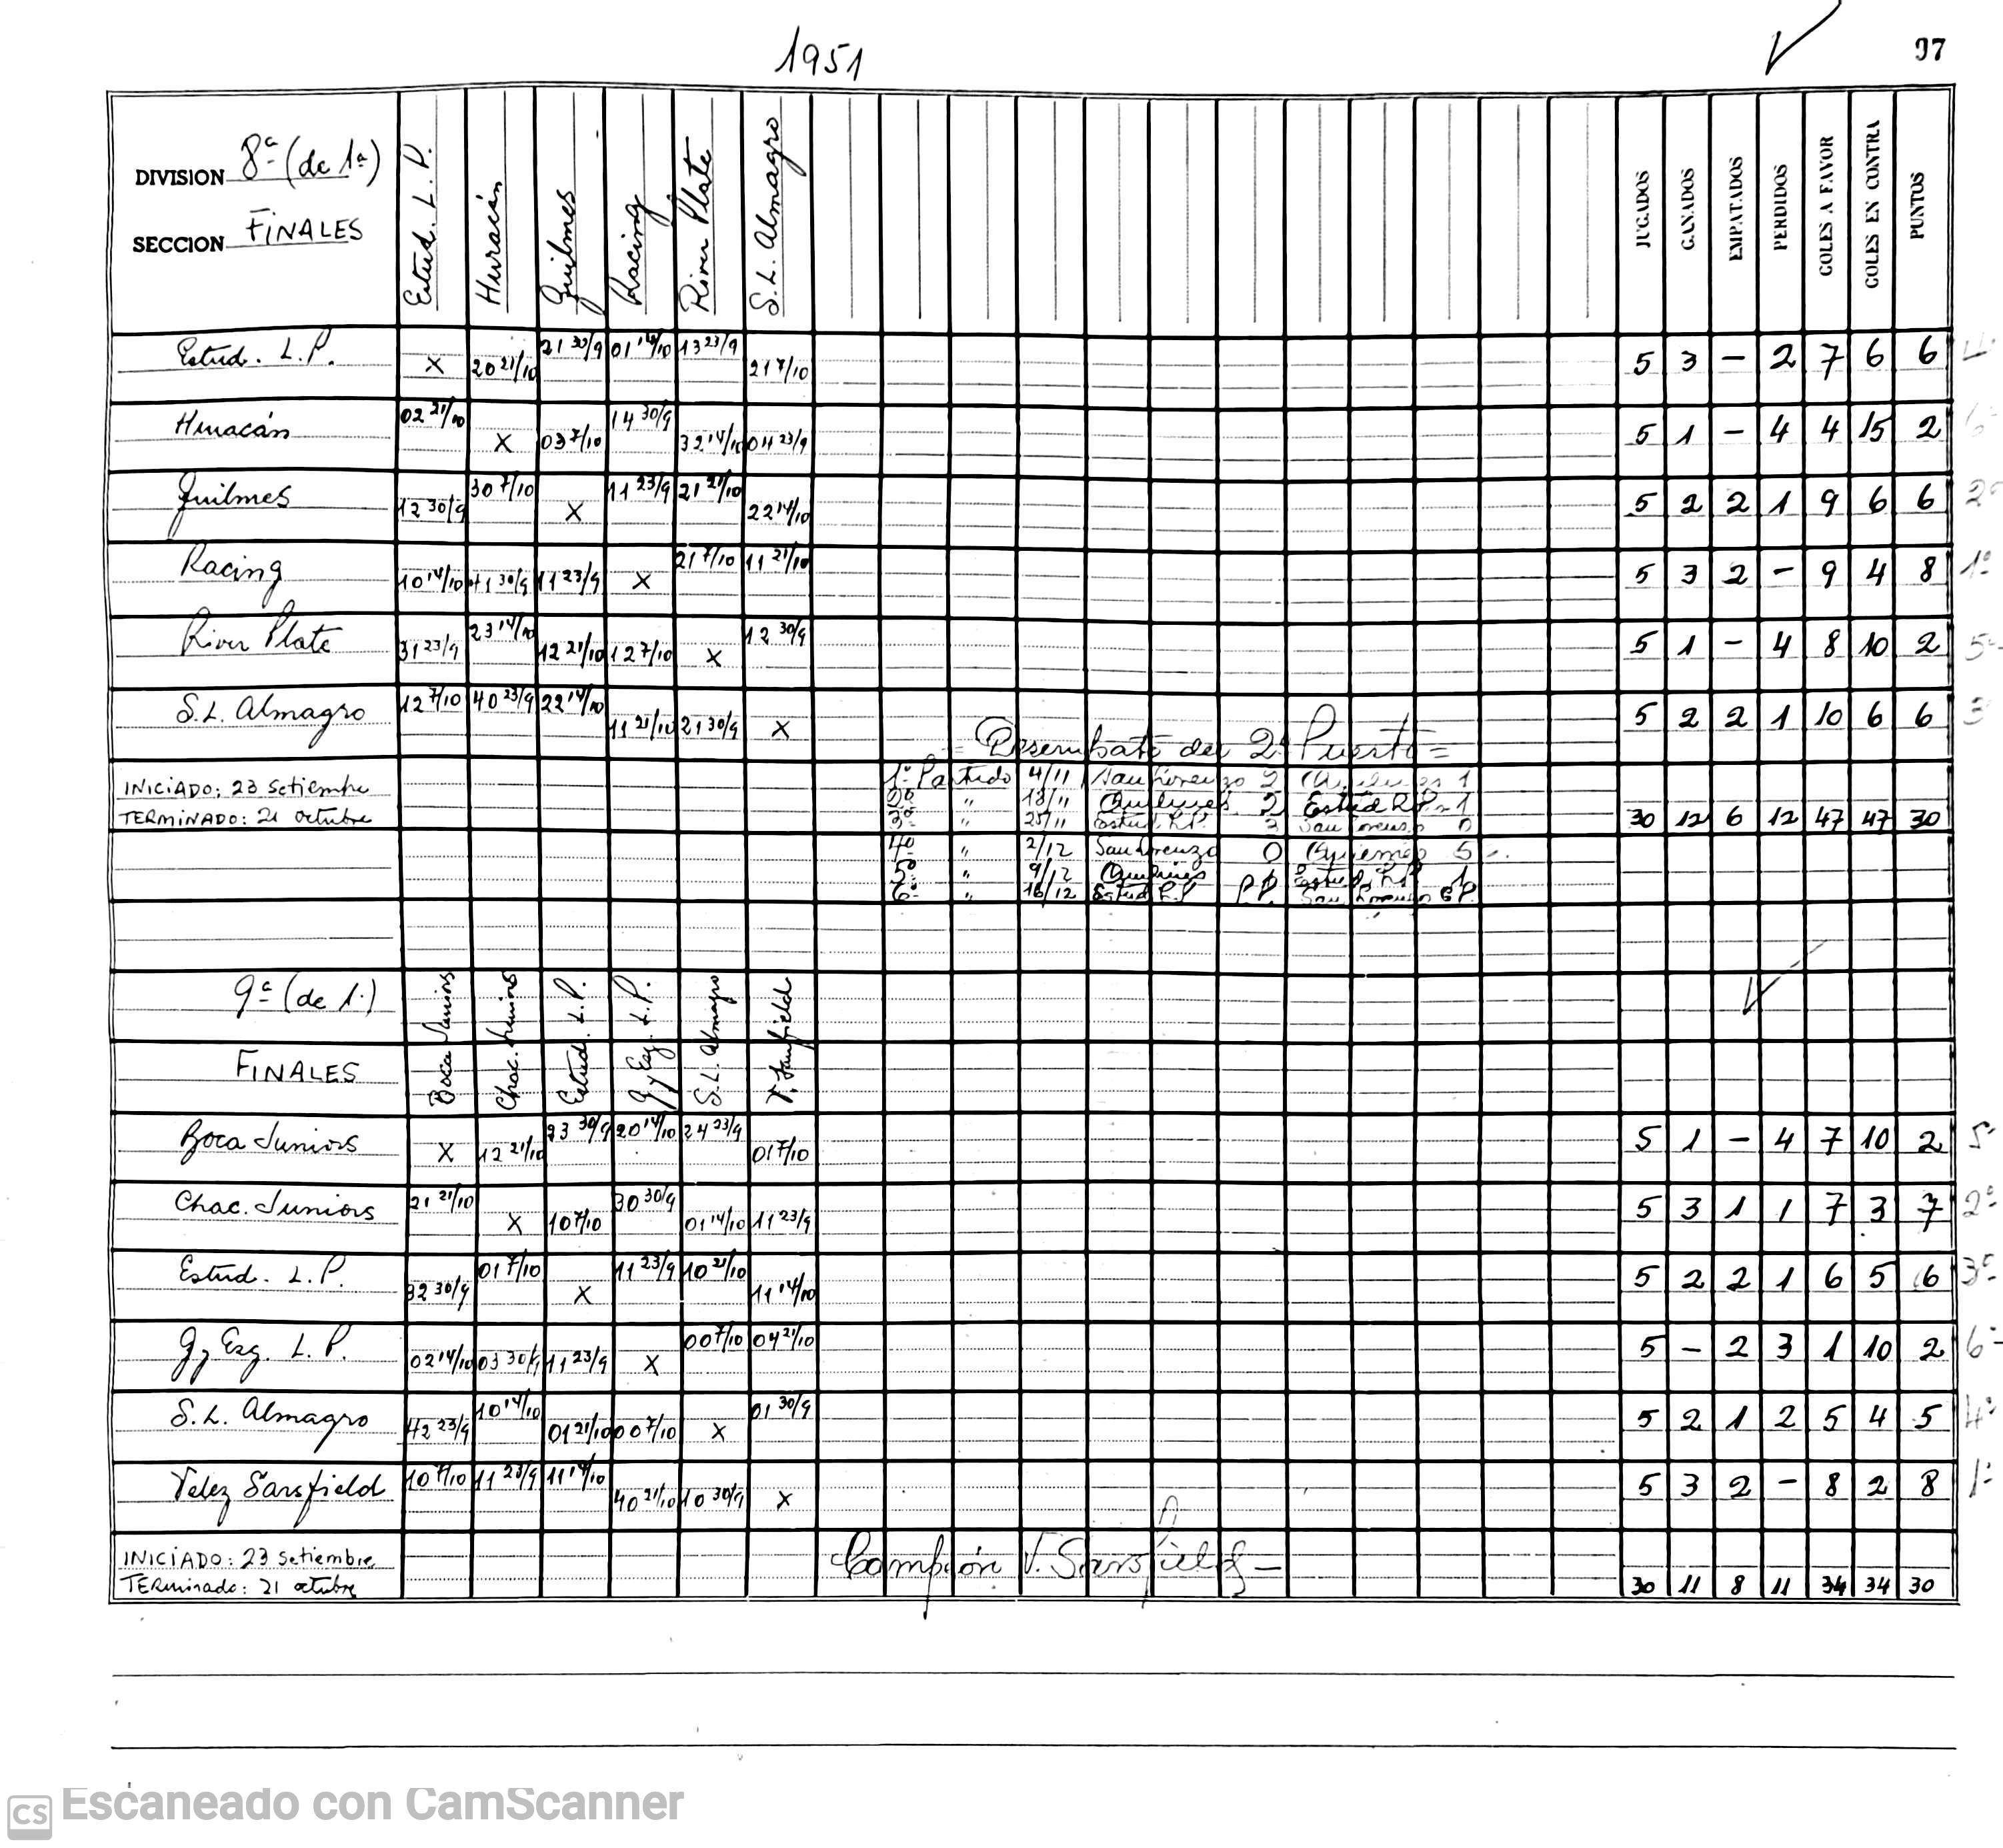 1951
97
DIVISION 8ª (de 1ª)
SECCION FINALES
Estud. L. P.
Huracán
Quilmes
Racing
River Plate
S.L. Almagro
JUGADOS
GANADOS
EMPATADOS
PERDIDOS
GOLES A FAVOR
GOLES EN CONTRA
PUNTOS
Estud. L.P. X 20 21/10 21 30/9 01 14/10 13 23/9 21 7/10 5 3 – 2 7 6 6 4º
Huracán 02 21/10 X 03 7/10 14 30/9 32 14/10 04 23/9 5 1 – 4 4 15 2 6º
Quilmes 12 30/9 30 7/10 X 11 23/9 21 21/10 22 14/10 5 2 2 1 9 6 6 2º
Racing 10 14/10 41 30/9 11 23/9 X 21 7/10 11 21/10 5 3 2 – 9 4 8 1º
River Plate 31 23/9 23 14/10 12 21/10 12 7/10 X 12 30/9 5 1 – 4 8 10 2 5º
S.L. Almagro 12 7/10 40 23/9 22 14/10 11 21/10 21 30/9 X 5 2 2 1 10 6 6 3
= Desempate del 2º Puesto =
INICIADO: 23 setiembre
TERMINADO: 21 octubre
1º Partido 4/11 San Lorenzo 2 Quilmes 1
2º " 18/11 Quilmes 2 Estud L.P. 1
3º " 25/11 Estud L.P. 3 San Lorenzo 0
30 12 6 12 47 47 30
4º " 2/12 San Lorenzo 0 Quilmes 5
5º " 9/12 Quilmes 1 Estud. L.P. 1
6º " 16/12 Estud L.P. P.P. San Lorenzo G.P.
9ª (de 1.)
FINALES
Boca Juniors
Chac. Juniors
Estud. L.P.
G. y Esg. L.P.
S.L. Almagro
V. Sarsfield
Boca Juniors X 12 21/10 23 30/9 20 14/10 24 23/9 01 7/10 5 1 – 4 7 10 2 5º
Chac. Juniors 21 21/10 X 10 7/10 30 30/9 01 14/10 11 23/9 5 3 1 1 7 3 7 2º
Estud. L.P. 32 30/9 01 7/10 X 11 23/9 10 21/10 11 14/10 5 2 2 1 6 5 6 3º
G. y Esg. L.P. 02 14/10 03 30/9 11 23/9 X 00 7/10 04 21/10 5 – 2 3 1 10 2 6º
S.L. Almagro 42 23/9 10 14/10 01 21/10 00 7/10 X 01 30/9 5 2 1 2 5 4 5 4º
Velez Sarsfield 10 7/10 11 23/9 11 14/10 40 21/10 10 30/9 X 5 3 2 – 8 2 8 1º
INICIADO: 23 setiembre
TERminado: 21 octubre
Campeón V. Sarsfield –
30 11 8 11 34 34 30
CS Escaneado con CamScanner